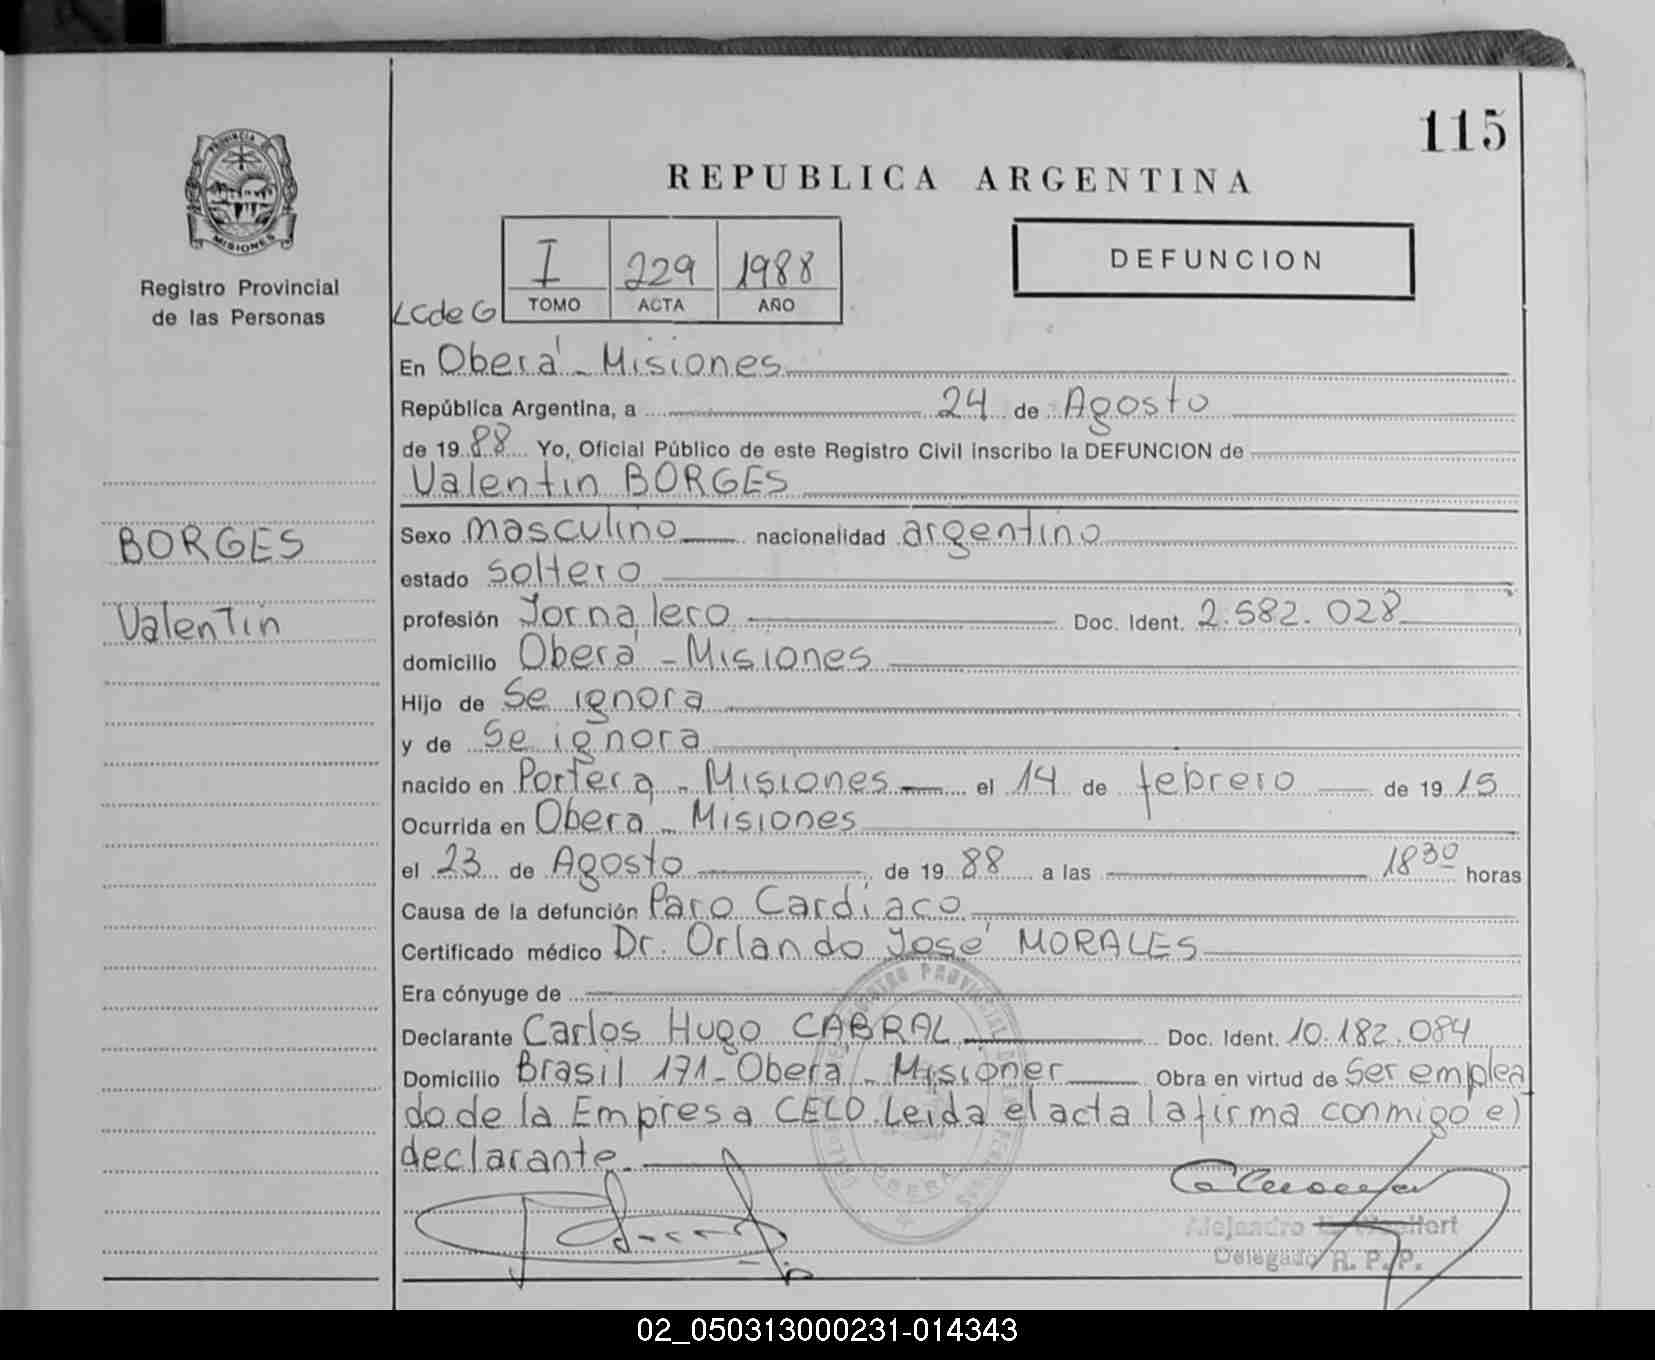 115
REPUBLICA ARGENTINA
PROVINCIA
MISIONES
Registro Provincial
de las Personas
I 229 1988
TOMO ACTA AÑO
DEFUNCION
LCdeG
En Oberá - Misiones
República Argentina, a 24 de Agosto
de 1988 Yo, Oficial Público de este Registro Civil inscribo la DEFUNCION de
Valentin BORGES
BORGES
Valentin
Sexo masculino nacionalidad argentino
estado soltero
profesión Jornalero Doc. Ident. 2.582.028
domicilio Oberá - Misiones
Hijo de Se ignora
y de Se ignora
nacido en - Misiones el 14 de febrero de 1915
Ocurrida en Oberá - Misiones
el 23 de Agosto de 1988 a las 18 30 horas
Causa de la defunción Paro Cardíaco
Certificado médico Dr. Orlando José MORALES
Era cónyuge de
Declarante Carlos Hugo CABRAL Doc. Ident. 10.182.084
Domicilio Brasil 171 - Oberá - Misioner Obra en virtud de ser emplea
do de la Empresa CELO. Leida el acta la firma conmigo el
declarante.
OBERA
Alejandro
Delegado R. P. P.
02_050313000231-014343